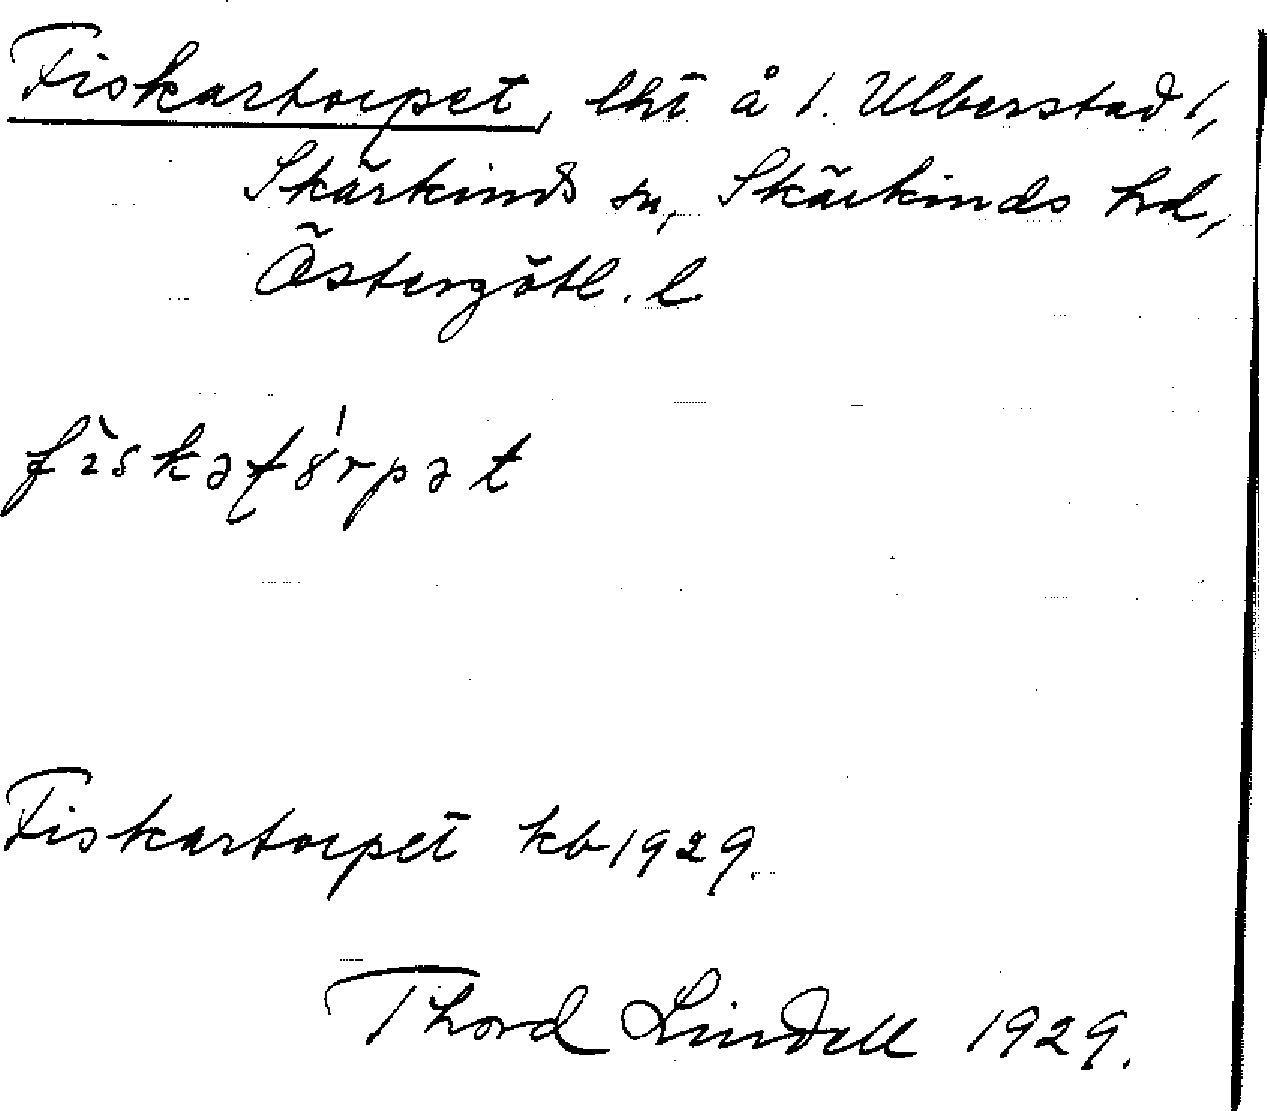 Fiskartorpet, lht å 1. Ulberstad 1,
Skärkinds sn, Skärkinds hd,
Östergötl. l
fìskətórpət
Fiskartorpet kb 1929.
Thord Lindell 1929.